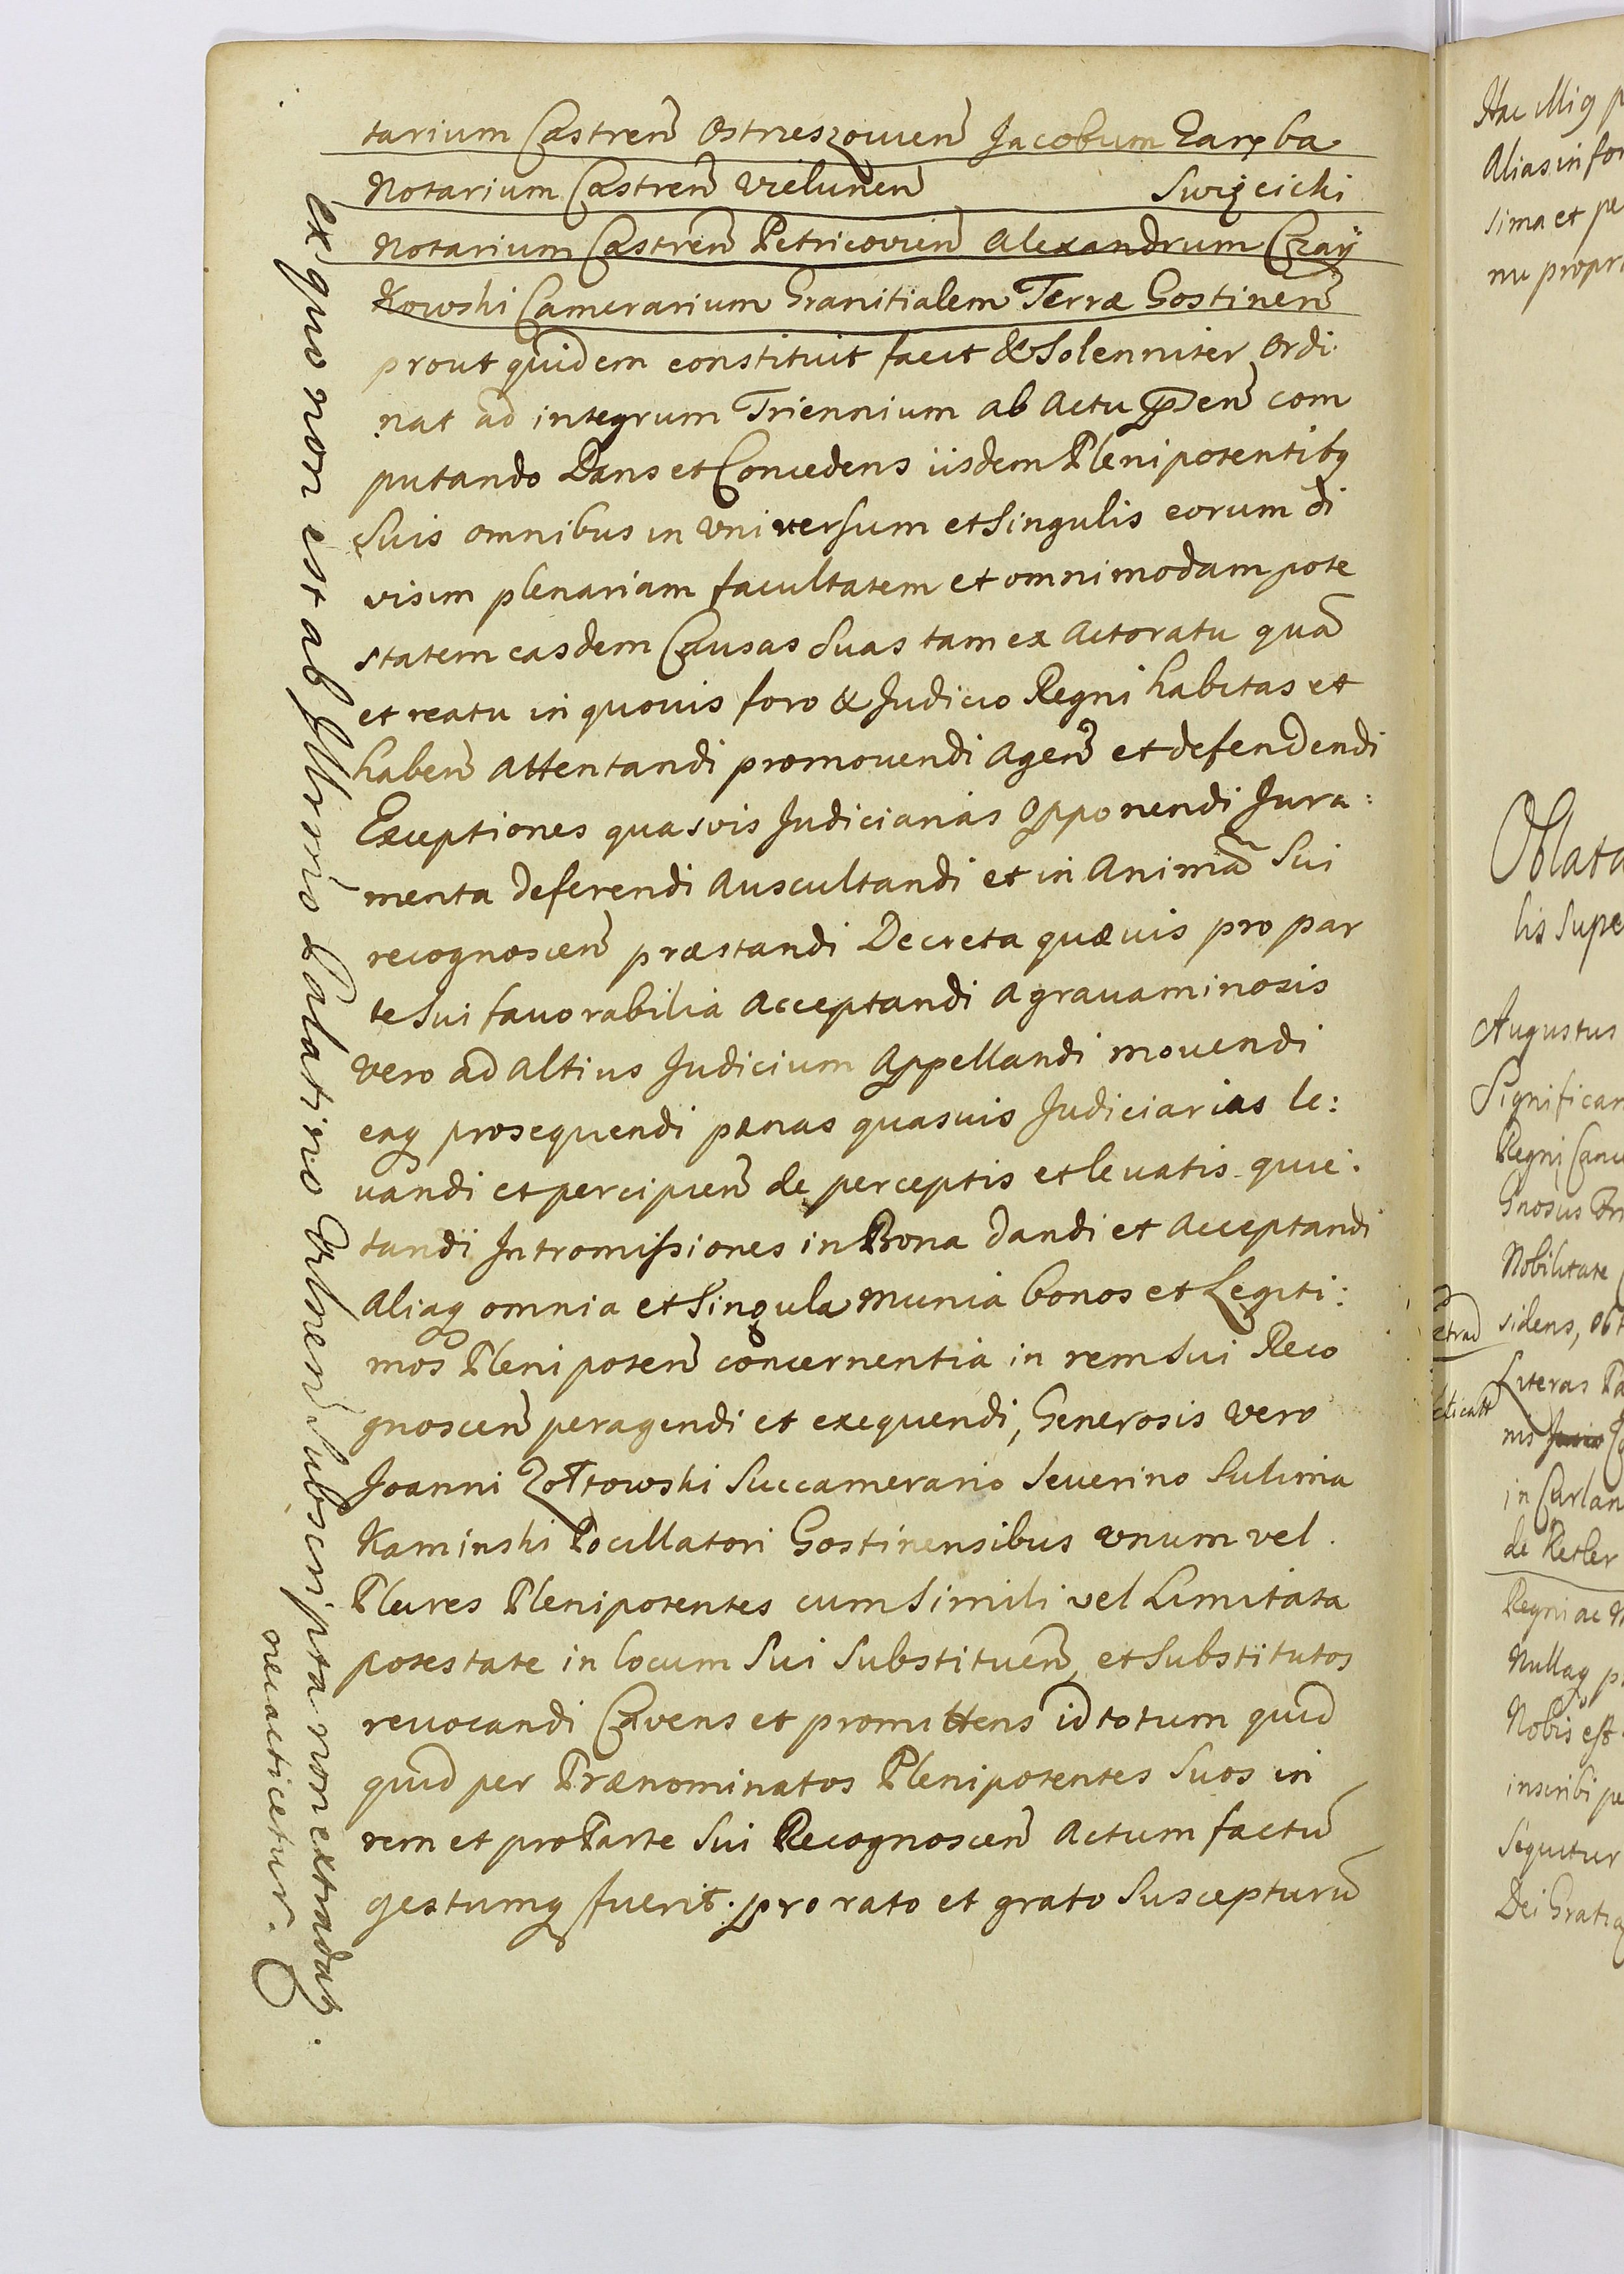 tarium Castren̄ Ostrzeszovien̄ Jacobum Zaręba
Notarium Castren̄ Vielunen̄ Swięcicki
Notarium Castren̄ Petricovien̄ Alexandrum Czay
Kowski Camerarium Granitialem Terræ Gostinen̄
prout quidem constituit facit & Solenniter Ordi
nat ad integrum Triennium ab Actu p̄n̄en̄ com
putando Dans et Concedens iisdem Plenipotentibꝫ
Suis omnibus in Universum et Singulis eorum di
visim plenariam facultatem et omnimodam pote
statem easdem Causas Suas tam ex Actoratu quā
et reatu in quovis foro & Judicio Regni habitas et
haben̄ Attentandi promovendi Agen̄ et defendendi
Exceptiones quasvis Judiciarias Opponendi Jura:
menta deferendi Auscultandi et in Animā Sui
recognoscen̄ præstandi Decreta quævis pro par
te Sui favorabilia Acceptandi A gravaminosis
Vero ad Altius Judicium Appellandi movendi
eaqꝫ prosequendi pænas quasvis Judiciarias le:
vandi et percipien̄ de perceptis et levatis quie:
tandi Intromissiones in Bona dandi et Acceptandi
Aliaqꝫ omnia et Singula Munia bonos et Legiti:
mos Plenipoten̄ concernentia in rem Sui Reco
gnoscen̄ peragendi et exequendi, Generosis Vero
Joanni Zołtowski Succamerario Severino Sulima
Kaminski Pocillatori Gostinensibus Unum vel
Plures Plenipotentes cum Simili vel Limitata
potestate in locum Sui Substituen̄ et Substitutos
revocandi Cavens et promittens id totum quid
quid per Prænominatos Plenipotentes Suos in
rem et pro Parte Sui Recognoscen̄ Actum factū
gestumqꝫ fuerit. pro rato et grato Suscepturū
ex quo non est ab Illustrio Palatino Culmen̄ Subscripta non extradatꝫ.
nec acticetur.
Augustus
Regni
Nobilitate
sidens,
Literas
de Ketler
Nobis est
Sequitur
Dei Gratia